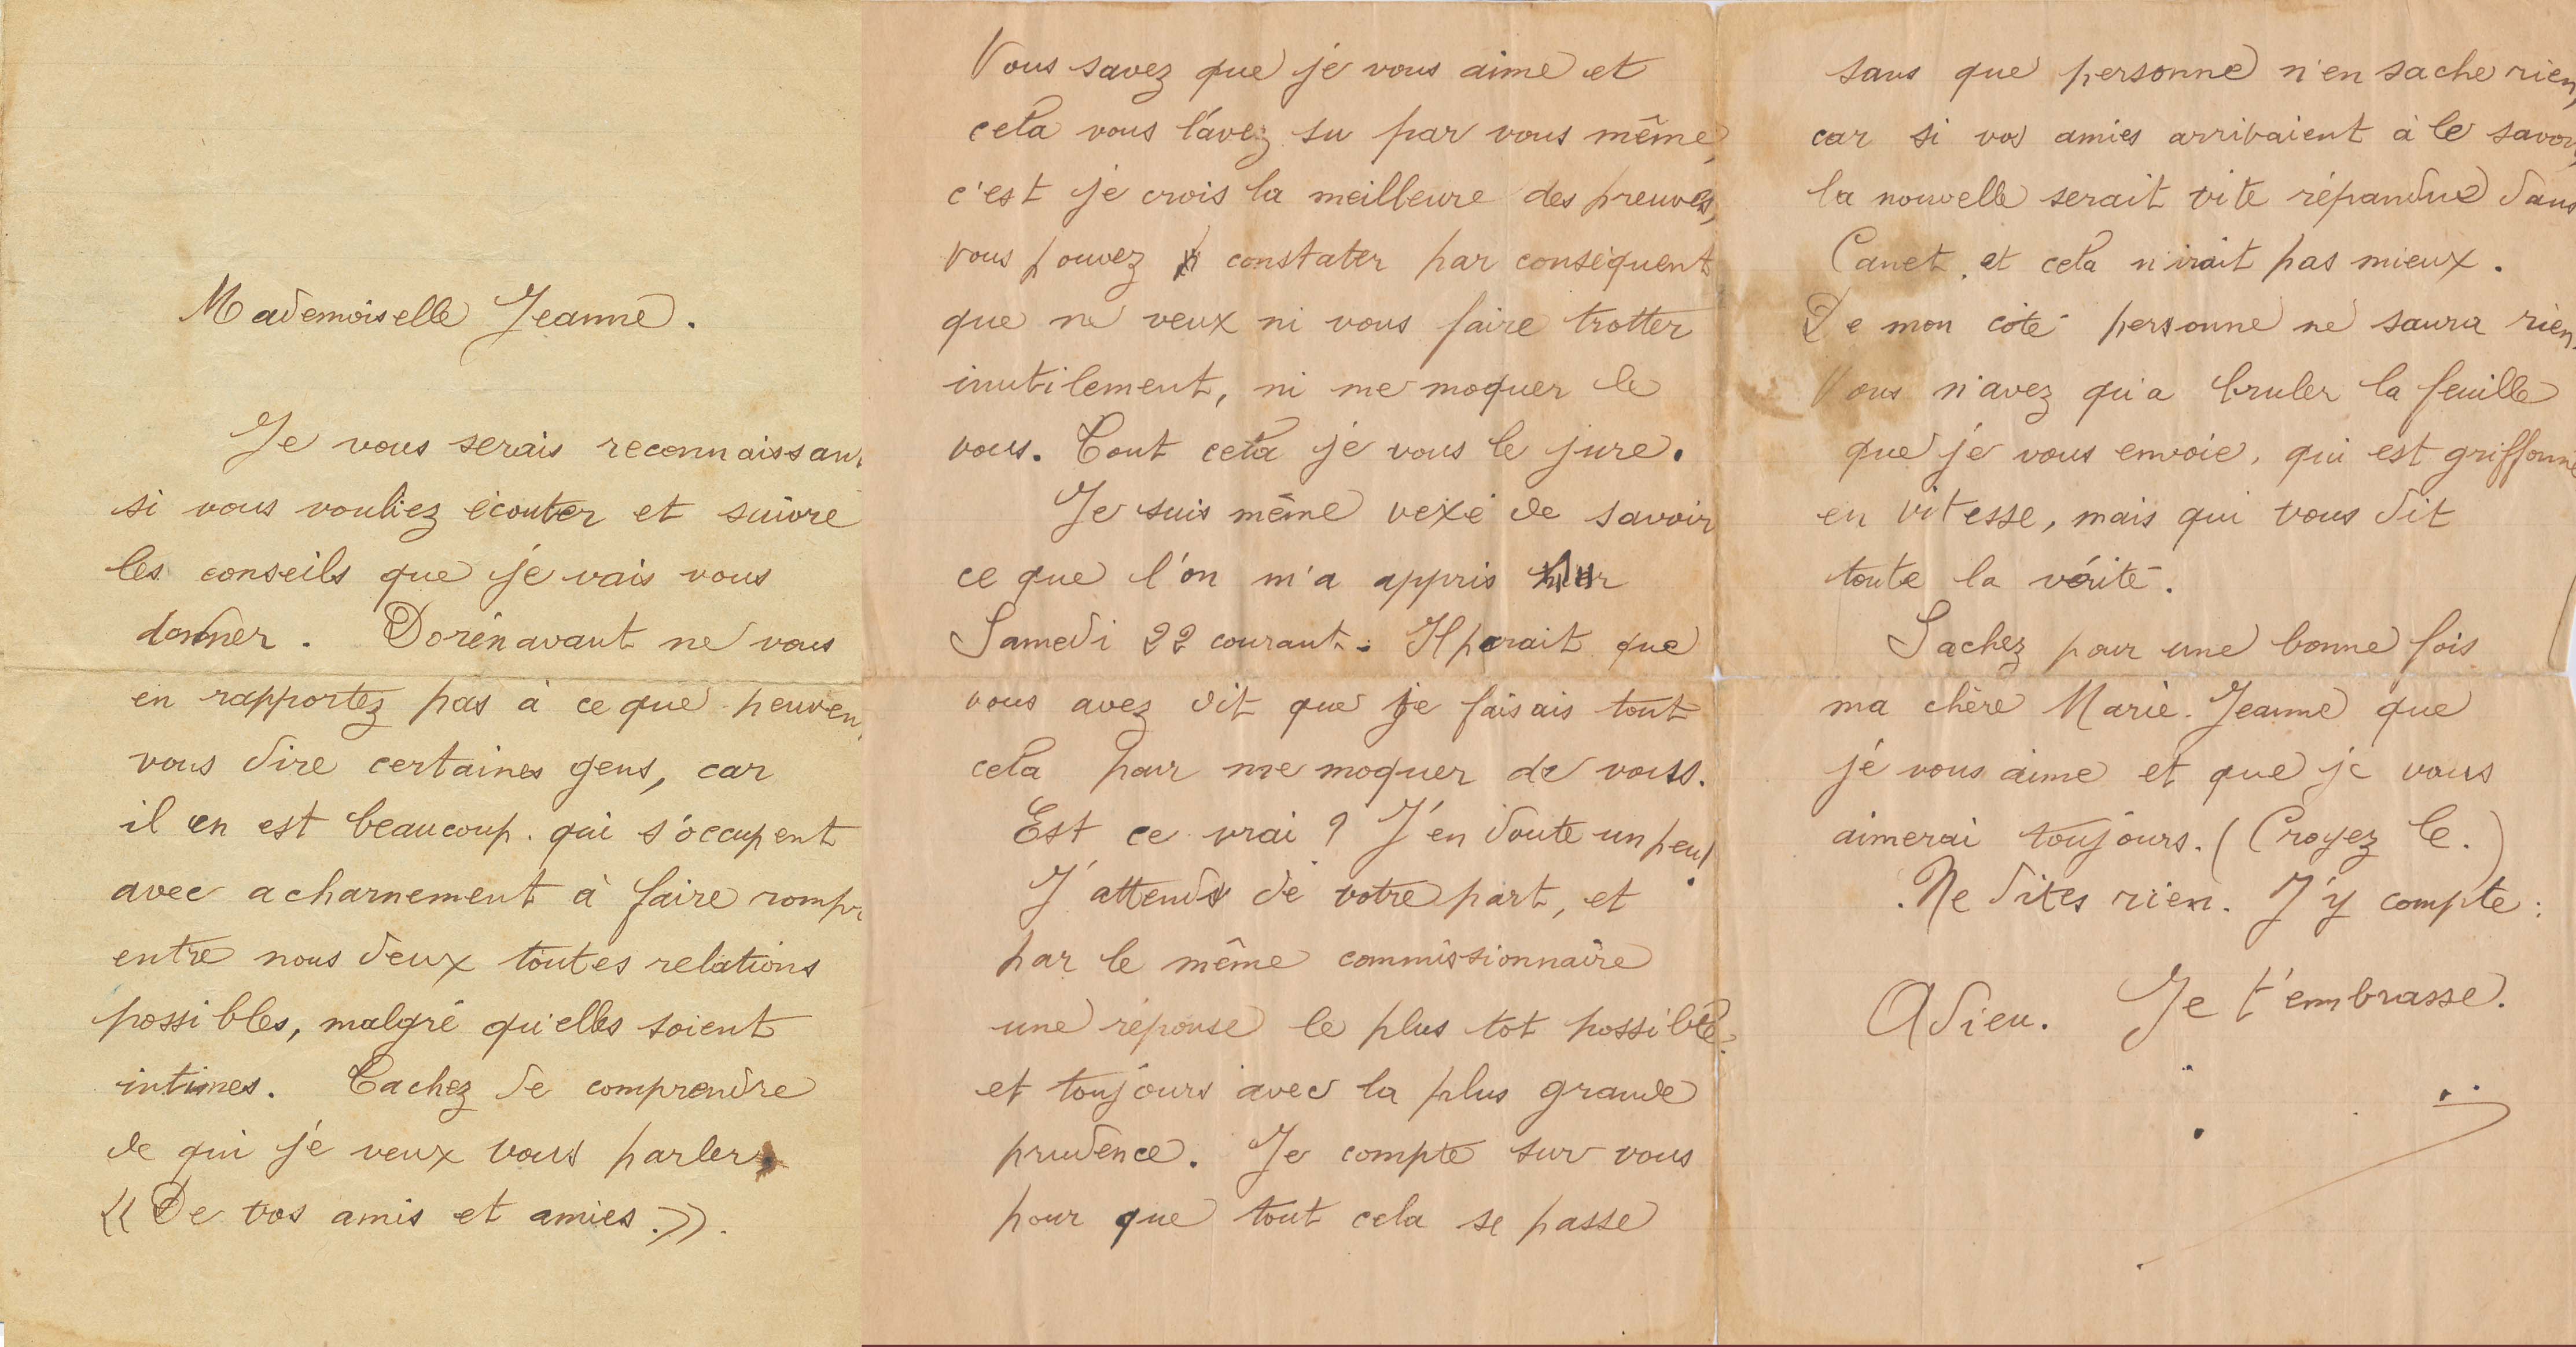 Mademoiselle Jeanne.
Je vous serais reconnaissant
si vous vouliez écouter et suivre
les conseils que je vais vous
donner. Dorénavant ne vous
en rapportez pas à ce que peuven
vous dire certaines gens, car
il en est beaucoup. qui s'occupent
avec acharnement à faire rompr
entre nous deux toutes relations
possibles, malgré qu'elles soient
intimes. Tachez de comprendre
de qui je veux vous parler
« De vos amis et amies. ».
Vous savez que je vous aime et
cela vous l'avez su par vous même,
c'est je crois la meilleure des preuves,
vous pouvez constater par conséquent
que ne veux ni vous faire trotter
inutilement, ni me moquer de
vous. Tout cela je vous le jure.
Je suis même vexé de savoir
ce que l'on m'a appris
Samedi 22 courant. Il parait que
vous avez dit que je faisais tout
cela pour me moquer de vous.
Est ce vrai ? J'en doute un peu!
J'attends de votre part, et
par le même commissionnaire
une réponse le plus tot possible.
et toujours avec la plus grande
prudence. Je compte sur vous
pour que tout cela se passe
sans que personne n'en sache rien,
car si vos amies arrivaient à le savoir,
la nouvelle serait vite répandue dans
Canet. et cela n'irait pas mieux.
De mon coté personne ne saura rien.
Vous n'avez qu'a bruler la feuille
que je vous envoie, qui est griffonné
en vitesse, mais qui vous dit
toute la vérité.
Sachez pour une bonne fois
ma chère Marie-Jeanne que
je vous aime et que je vous
aimerai toujours. (Croyez le.)
Ne dites rien. J'y compte:
Adieu. Je t'embrasse.